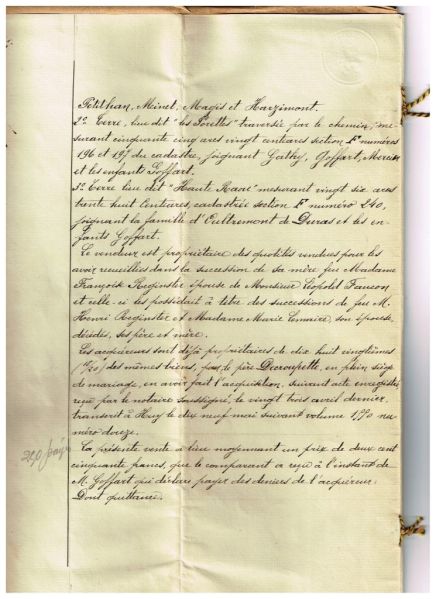 Petithan, Meinet, Magis et Harzimont.
2° Terre, lieu dit "les Forettes" traversée par le chemin, me-
surant cinquante cinq ares vingt centiares section F numéros
196 et 197 du cadastre, joignant Gathy, Goffart, Mercier
et les enfants Goffart.
3° Terre lieu dit "Haute Raoe" mesurant vingt six ares
trente huit Centiares, cadastrée section F numéro 240,
joignant la famille d'Oultremont de Duras et les en-
fants Goffart.
Le vendeur est propriétaire des quotités vendues pour les
avoir recueillies dans la succession de sa mère feue Madame
Françoise Reginster épouse de Monsieur Léopold Fauson
et celle-ci les possédait à titre des successions de feu M.
Henri Reginster et Madame Marie Lemaire, son épouse,
décédés, ses père et mère.
Les acquéreurs sont déjà propriétaires de dix huit vingtièmes
(18/20) des mêmes biens, père Decroupette, en plein siège
de mariage, en avoir fait l'acquisition, suivant acte enregistré
reçu par le notaire soussigné, le vingt trois avril dernier,
transcrit à Huy le dix neuf mai suivant volume 1790 nu-
méro douze.
La présente vente a lieu moyennant un prix de deux cent
cinquante francs, que le comparant a reçu à l'instant de
M. Goffart qui déclare payer des deniers de l'acquéreur.
Dont quittance.
250